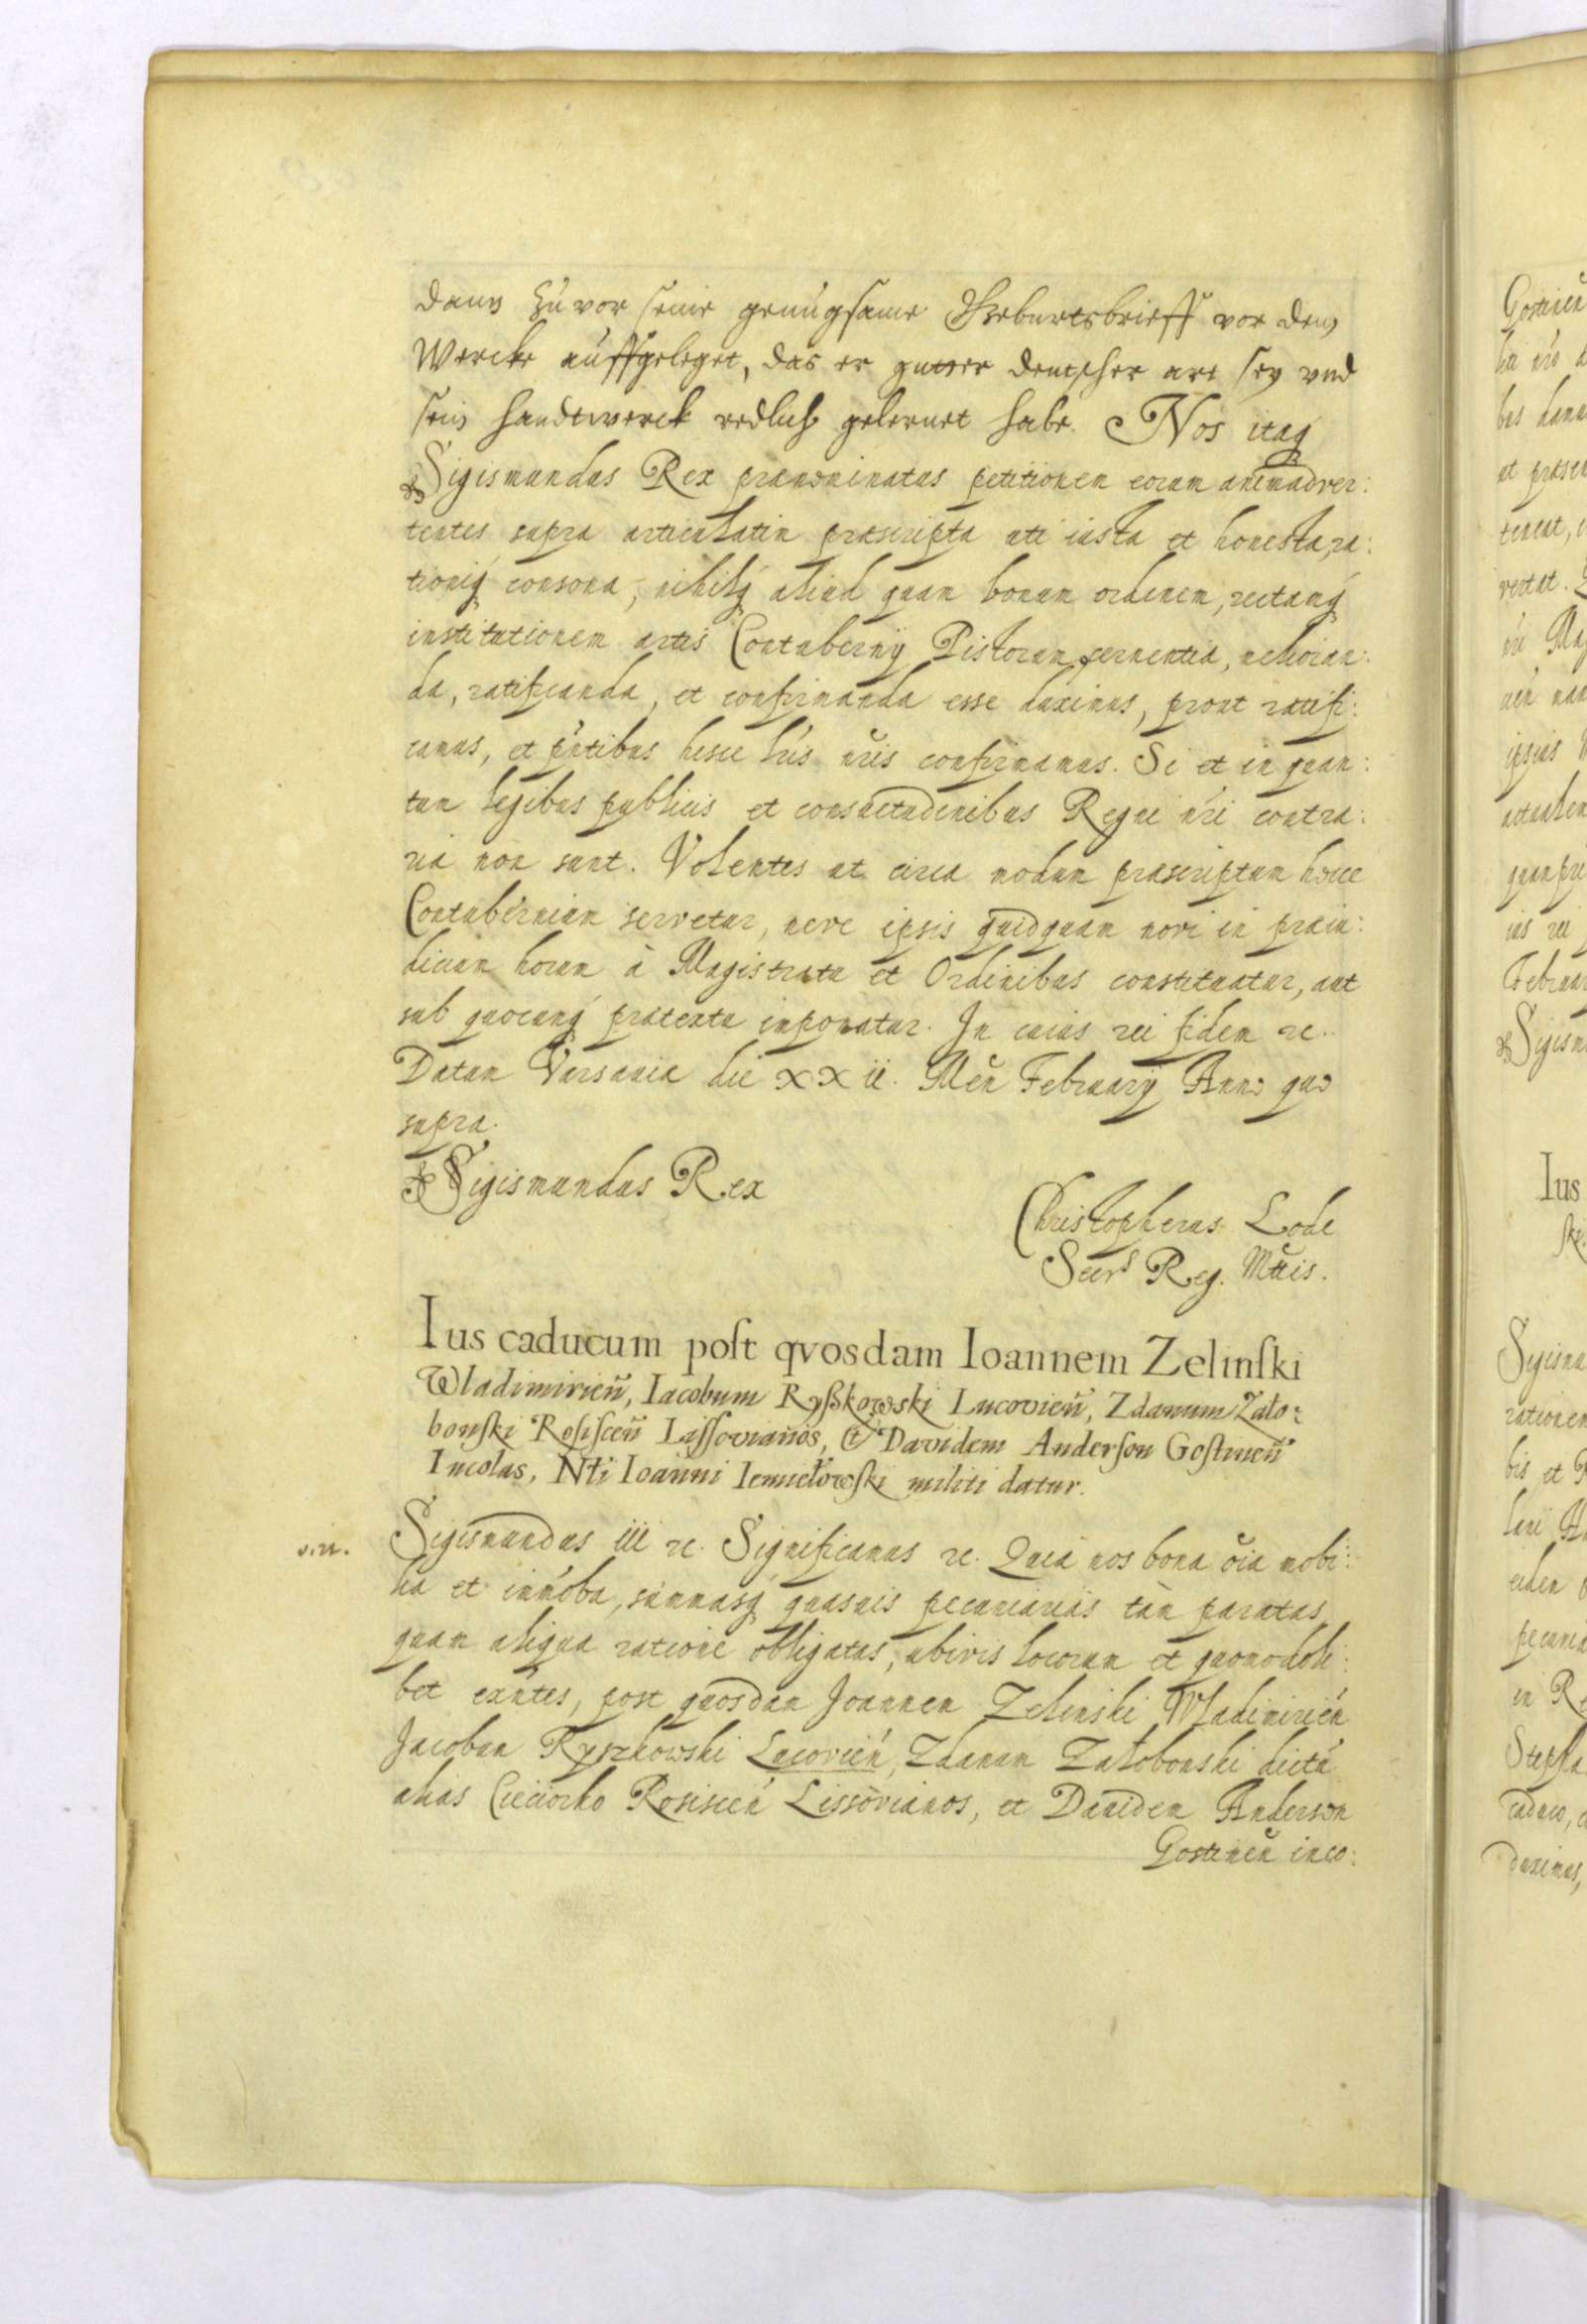 dann zuvor seine genugsame Geburtsbrieff vor dem
Wercke auffgeleget, das er gutter deutscher art sey vnd
sein handtwerck redlich gelernet habe. Nos itaq
Sigismundus Rex prænominatus petitionem eorum animadver:
tentes supra articulatim præscripta uti iusta et honesta, ra:
tioniq consona, nihilq aliud quam bonum ordinem, rectamq
institutionem artis Contubernij Pistorum servientia, melioran:
da, ratificanda, et confirmanda esse duximus, prout ratifi:
camus, et pntibus hisce lris nris confirmamus. Si et in quan:
tum legibus publicis et consuetudinibus Regni nri contra:
ria non sunt. Volentes ut circa modum præscriptum hocce
Contubernium servetur, neve ipsis quidquam novi in præiu:
dicium horum à Magistratu et Ordinibus constituatur, aut
sub quocunq prætextu imponatur. In cuius rei fidem etc.
Datum Varsaviæ die XXii. Men Februarij Anno quo
supra.
Sigismundus Rex
Christopherus Lode
Secrs Reg. Mttis.
Ius caducum post qvosdam Ioannem Zelinski
Wladimirien, Iacobum Ryßkowski Lucovien, Zdanum Zało:
bonski Rosiscen Lissovianos, et Davidem Anderson Gostinen
Incolas, Nti Ioanni Iemielowski militi datur.
Sigismundus iii etc. Significamus etc. Quia nos bona oia mobi:
lia et immoba, summasq quasvis pecuniarias tàm paratas
quam aliqua ratione obligatas, ubivis locorum et quomodoli:
bet exntes, post quosdam Joannem Zelinski Wladimirien
Jacobum Ryszkowski Lucovien, Zdanum Załobonski dictu
alias Cieciorko Rosiscen Lissovianos, et Davidem Anderson
Gostinen inco: